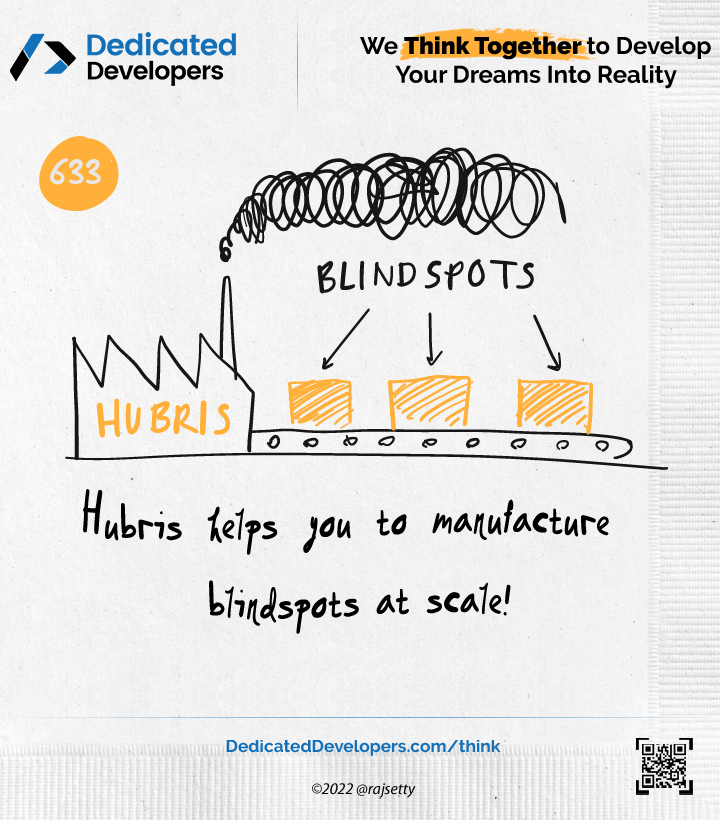 Dedicated
Developers
We Think Together to Develop
Your Dreams Into Reality
633
BLINDSPOTS
HUBRIS
Hubris helps you to manufacture
blindspots at scale!
DedicatedDevelopers.com/think
©2022 @rajsetty